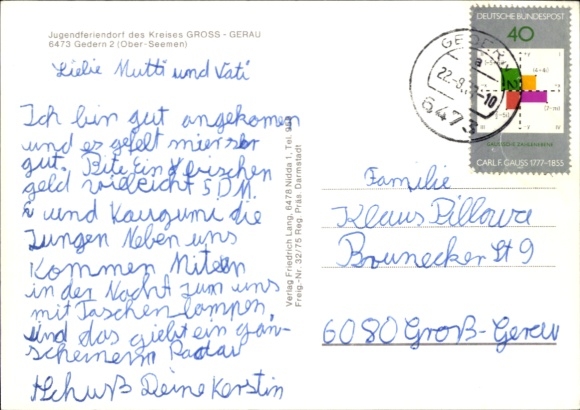 Jugendferiendorf des Kreises GROSS - GERAU
6473 Gedern 2 (Ober-Seemen)
Liebe Mutti und Vati
Ich bin gut angekomen
und es gefelt mier ser
gut. Bite Ein bischen
geld vieleicht 5 D.M.
und Kaugumi die
Jungen Neben uns
Kommen Miten
in der Nacht zum uns
mit Taschen lampen,
und das giebt ein gan-
schenern Radau
Tschuß Deine Kerstin
Verlag Friedrich Lang, 6478 Nidda 1, Tel.
Freig.-Nr. 32/75 Reg. Präs. Darmstadt
DEUTSCHE BUNDESPOST
40
GAUSSSCHE ZAHLENEBENE
CARL F. GAUSS 1777-1855
GEDERN
a
22.-8.
-10
6473
Familie
Klaus Pillowa
Brunecker St 9
6080 Groß-Gerau